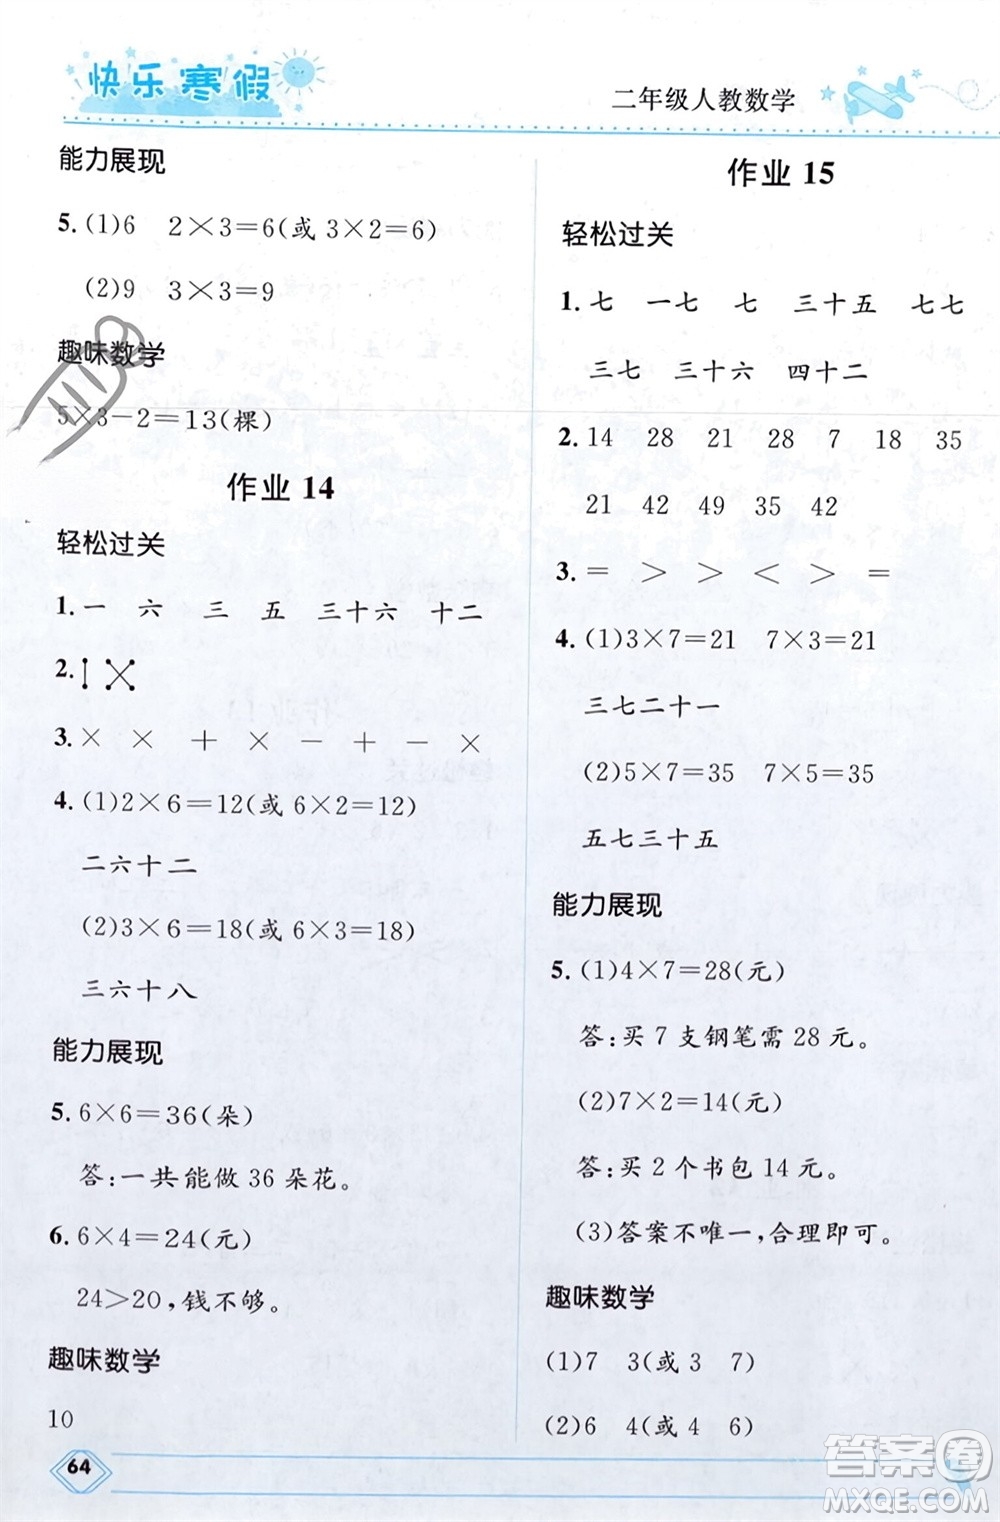 快乐寒假
二年级人教数学
能力展现
5. (1)6 2×3=6(或 3×2=6)
(2)9 3×3=9
趣味数学
5×3-2=13(棵)
作业 14
轻松过关
1. 一 六 三 五 三十六 十二
2.
3. × × + × - + - ×
4. (1)2×6=12(或 6×2=12)
二六十二
(2)3×6=18(或 6×3=18)
三六十八
能力展现
5. 6×6=36(朵)
答:一共能做 36 朵花。
6. 6×4=24(元)
24>20,钱不够。
趣味数学
10
64
作业 15
轻松过关
1. 七 一七 七 三十五 七七
三七 三十六 四十二
2. 14 28 21 28 7 18 35
21 42 49 35 42
3. = > > < > =
4. (1)3×7=21 7×3=21
三七二十一
(2)5×7=35 7×5=35
五七三十五
能力展现
5. (1)4×7=28(元)
答:买 7 支钢笔需 28 元。
(2)7×2=14(元)
答:买 2 个书包 14 元。
(3)答案不唯一,合理即可。
趣味数学
(1)7 3(或 3 7)
(2)6 4(或 4 6)
答案圈
MXQE.COM